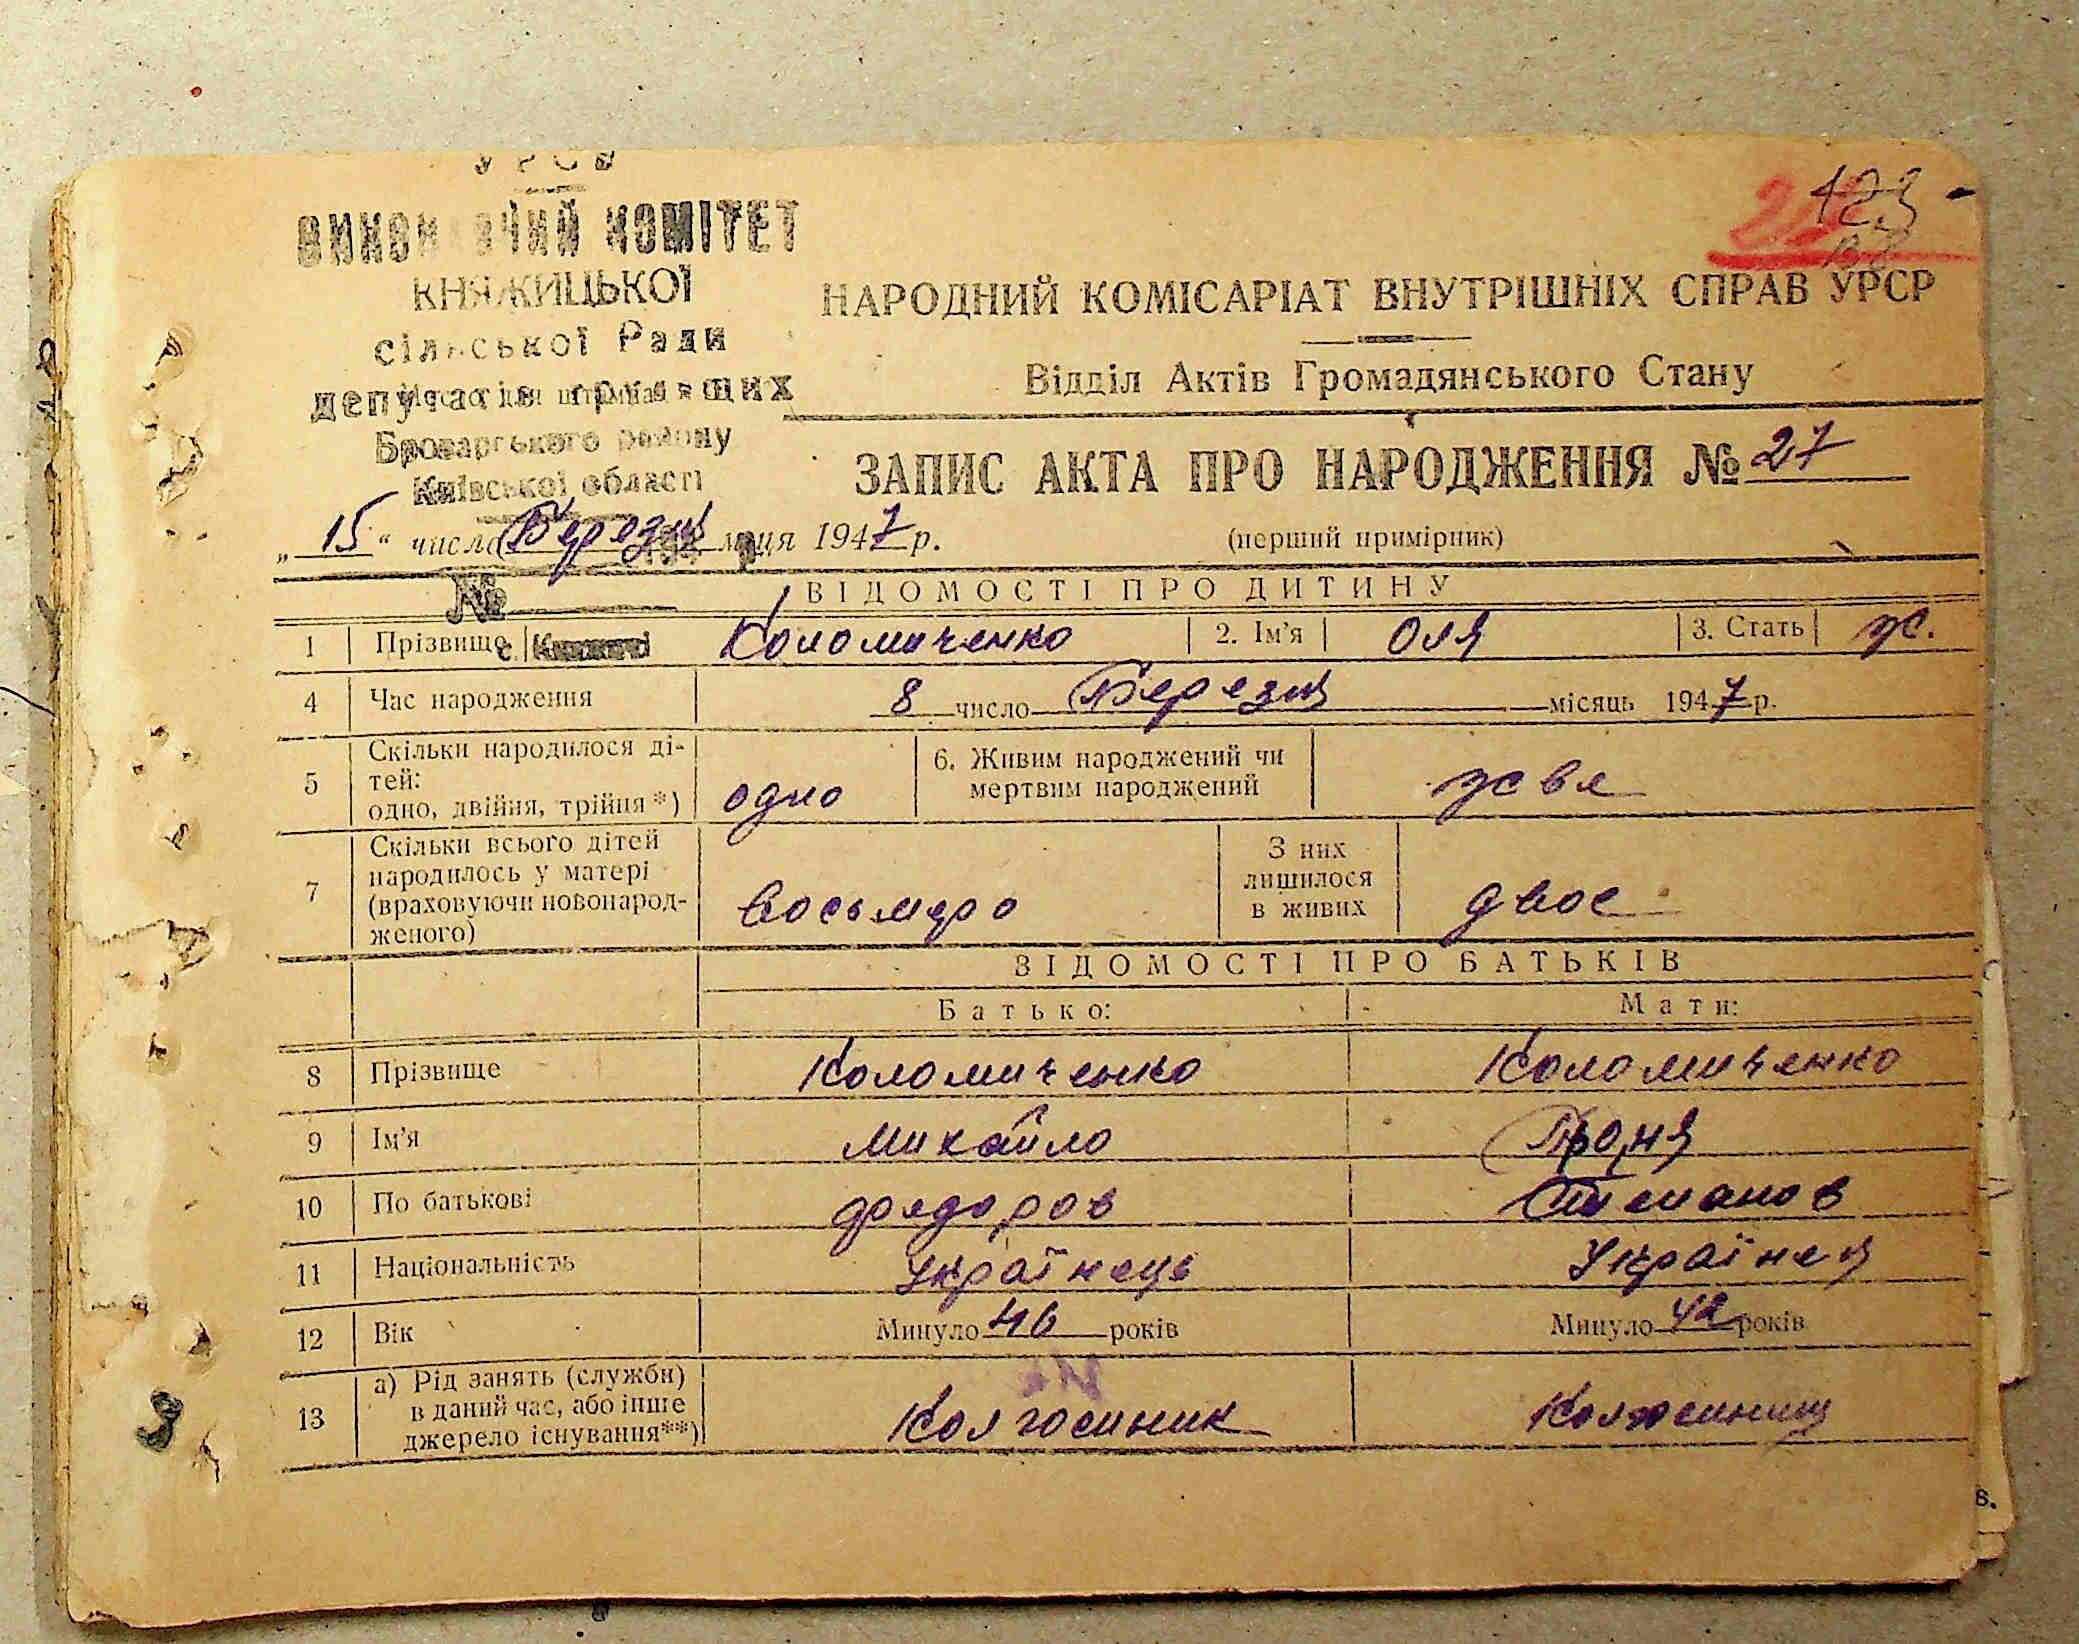 УРСР
ВИКОНАВЧИЙ КОМІТЕТ
КНЯЖИЦЬКОЇ
сільської Ради
депутатів трудящих
Броварського району
Київської області
НАРОДНИЙ КОМІСАРІАТ ВНУТРІШНІХ СПРАВ УРСР
Відділ Актів Громадянського Стану
ЗАПИС АКТА ПРО НАРОДЖЕННЯ № 27
(перший примірник)
„15“ число Березня м-ця 1947 р.
№
ВІДОМОСТІ ПРО ДИТИНУ
1 Прізвище Коломиченко 2. Ім'я Оля 3. Стать ж.
4 Час народження 8 число Березня місяць 1947 р.
5 Скільки народилося ді-
тей:
одно, двійня, трійня*) одно
6. Живим народжений чи
мертвим народжений жове
7 Скільки всього дітей
народилось у матері
(враховуючи новонарод-
женого) восьмеро
З них
лишилося
в живих двое
ВІДОМОСТІ ПРО БАТЬКІВ
Батько: Мати:
8 Прізвище Коломиченко Коломиченко
9 Ім'я Михайло
10 По батькові Фядоров Степанов
11 Національність Українець Українка
12 Вік Минуло 46 років Минуло 42 років
13 а) Рід занять (служби)
в даний час, або інше
джерело існування**) Колгоспник Колгоспниця